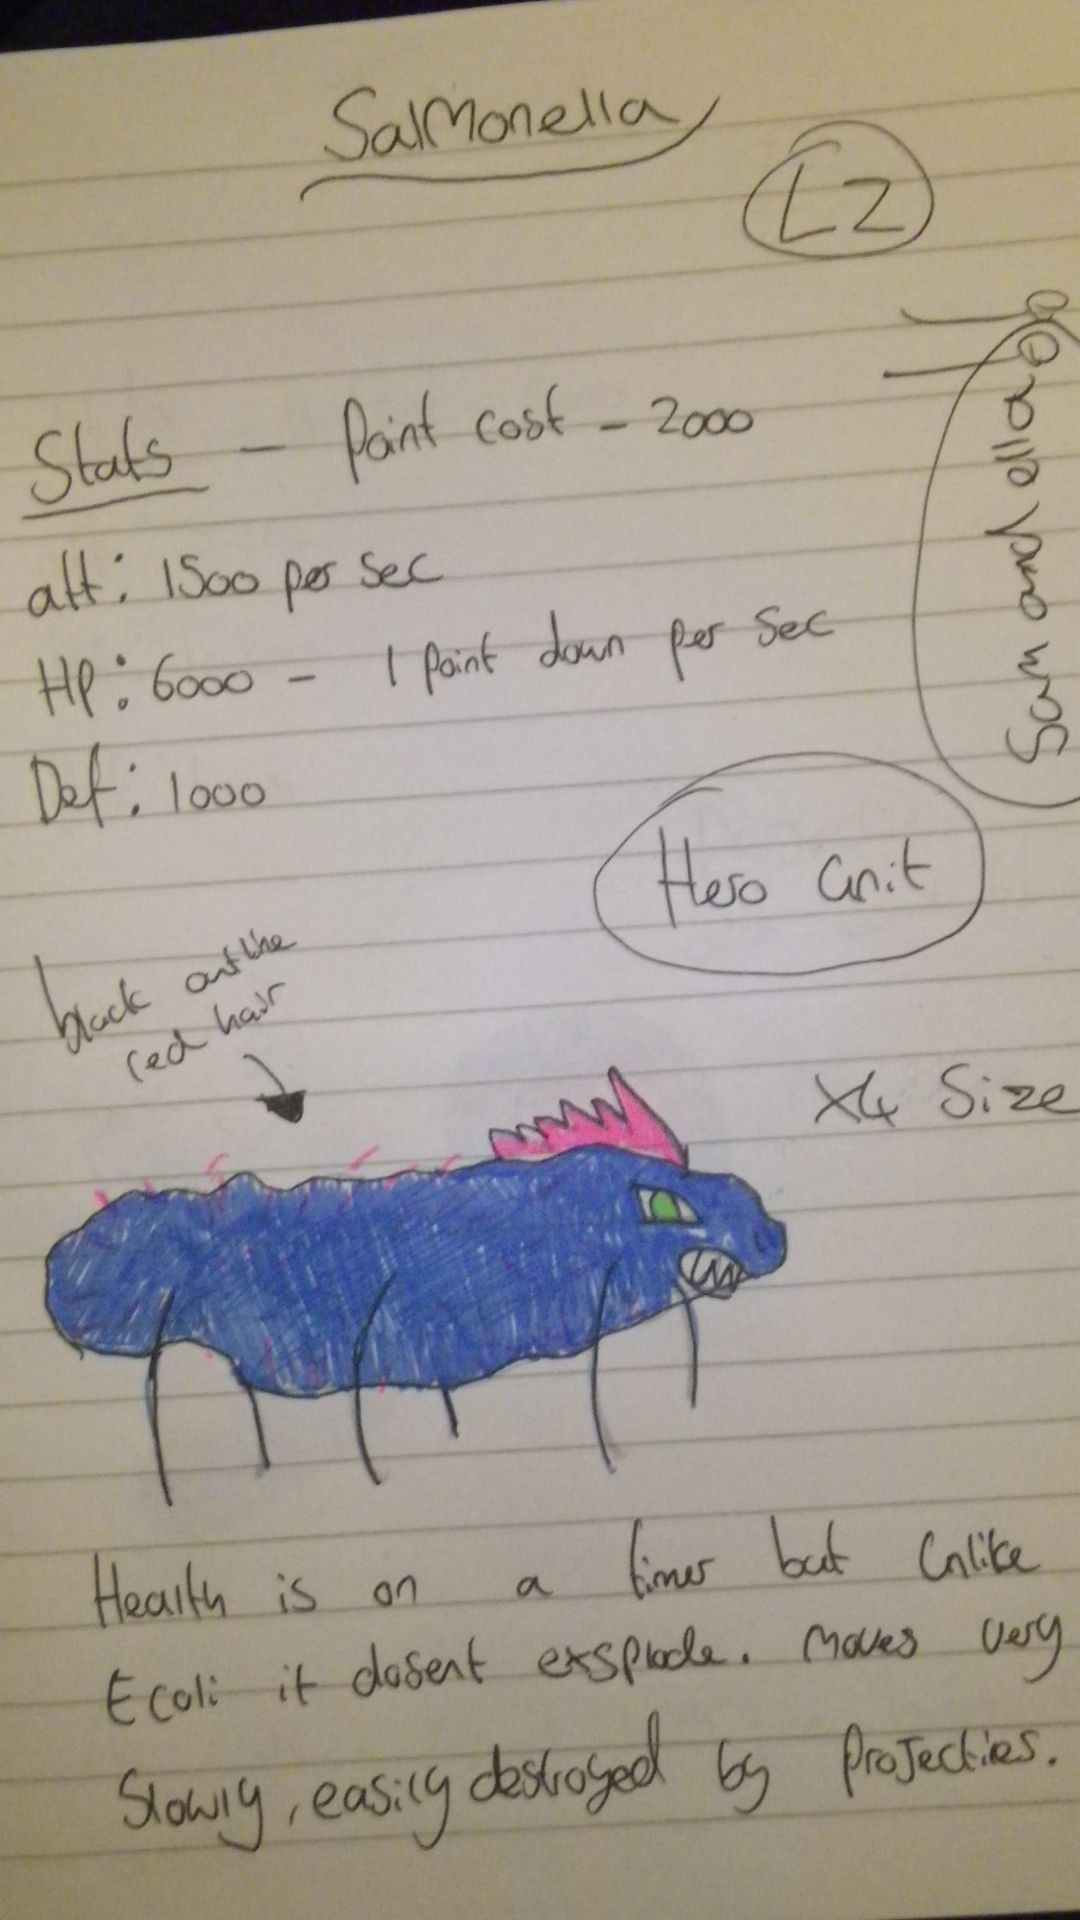 SalMonella
L2
Stats - Point cost - 2000
att: 1500 per sec
HP: 6000 - 1 point down per sec
Def: 1000
Sam and ella
Hero Unit
black outline
red hair
X4 Size
Health is on a timer but Unlike
Ecoli it dosent exsplode. Moves very
Slowly, easily destroyed by Projecties.